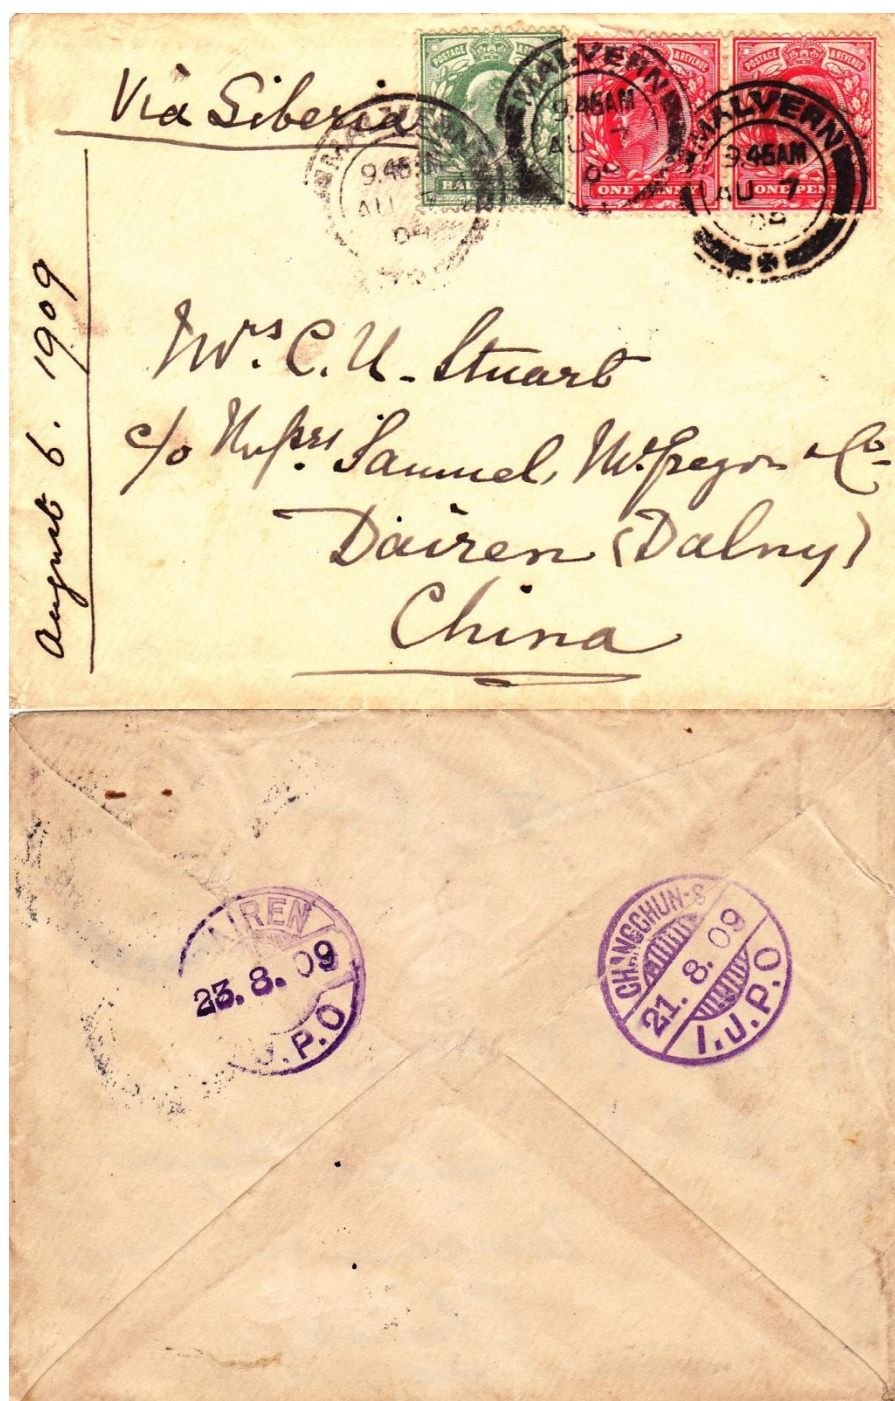 Via Siberia
POSTAGE REVENUE
POSTAGE & REVENUE
POSTAGE & REVENUE
HALF
ONE PENNY
ONE PENNY
MALVERN
9.45AM
AU 7
09
MALVERN
9.45AM
AU 7
09
MALVERN
9.45AM
AU 7
09
August 6. 1909
Mrs. C. U. Stuart
c/o Messrs Samuel, McGregor & Co
Dairen (Dalny)
China
DAIREN
23.8.09
I.J.P.O
CHANGCHUN-S
21.8.09
I.J.P.O